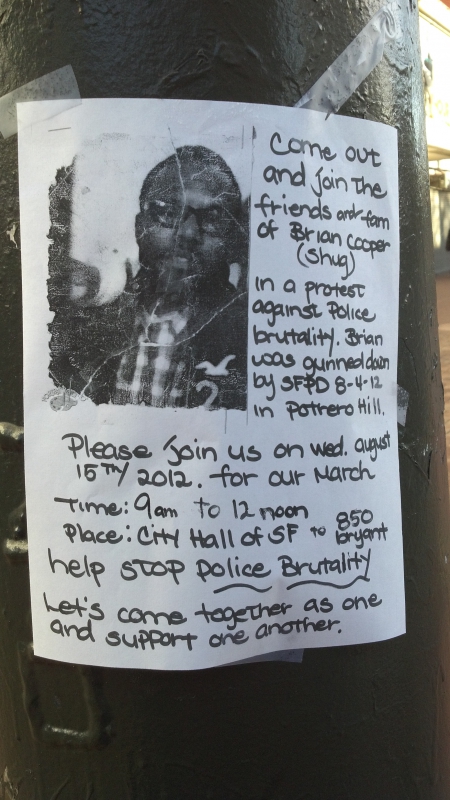 Come out
and join The
friends and fam
of Brian Cooper
(Shug)
in a protest
against Police
brutality. Brian
was gunned down
by SFPD 8-4-12
in Potrero Hill.
Please join us on wed. august
15TH/2012. for our March
Time: 9am to 12 noon
Place: City Hall of SF to 850 bryant
help STOP Police Brutality
Let's come together as one
and support one another.